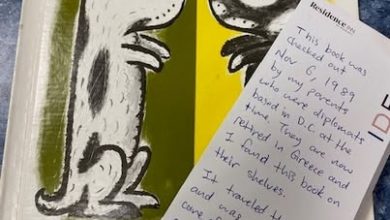 Residence INN
This book was
checked out
Nov 6, 1989
by my parents
who were diplomats
based in D.C. at the
time. They are now
retired in Greece and
I found this book on
their shelves.
It traveled
and was